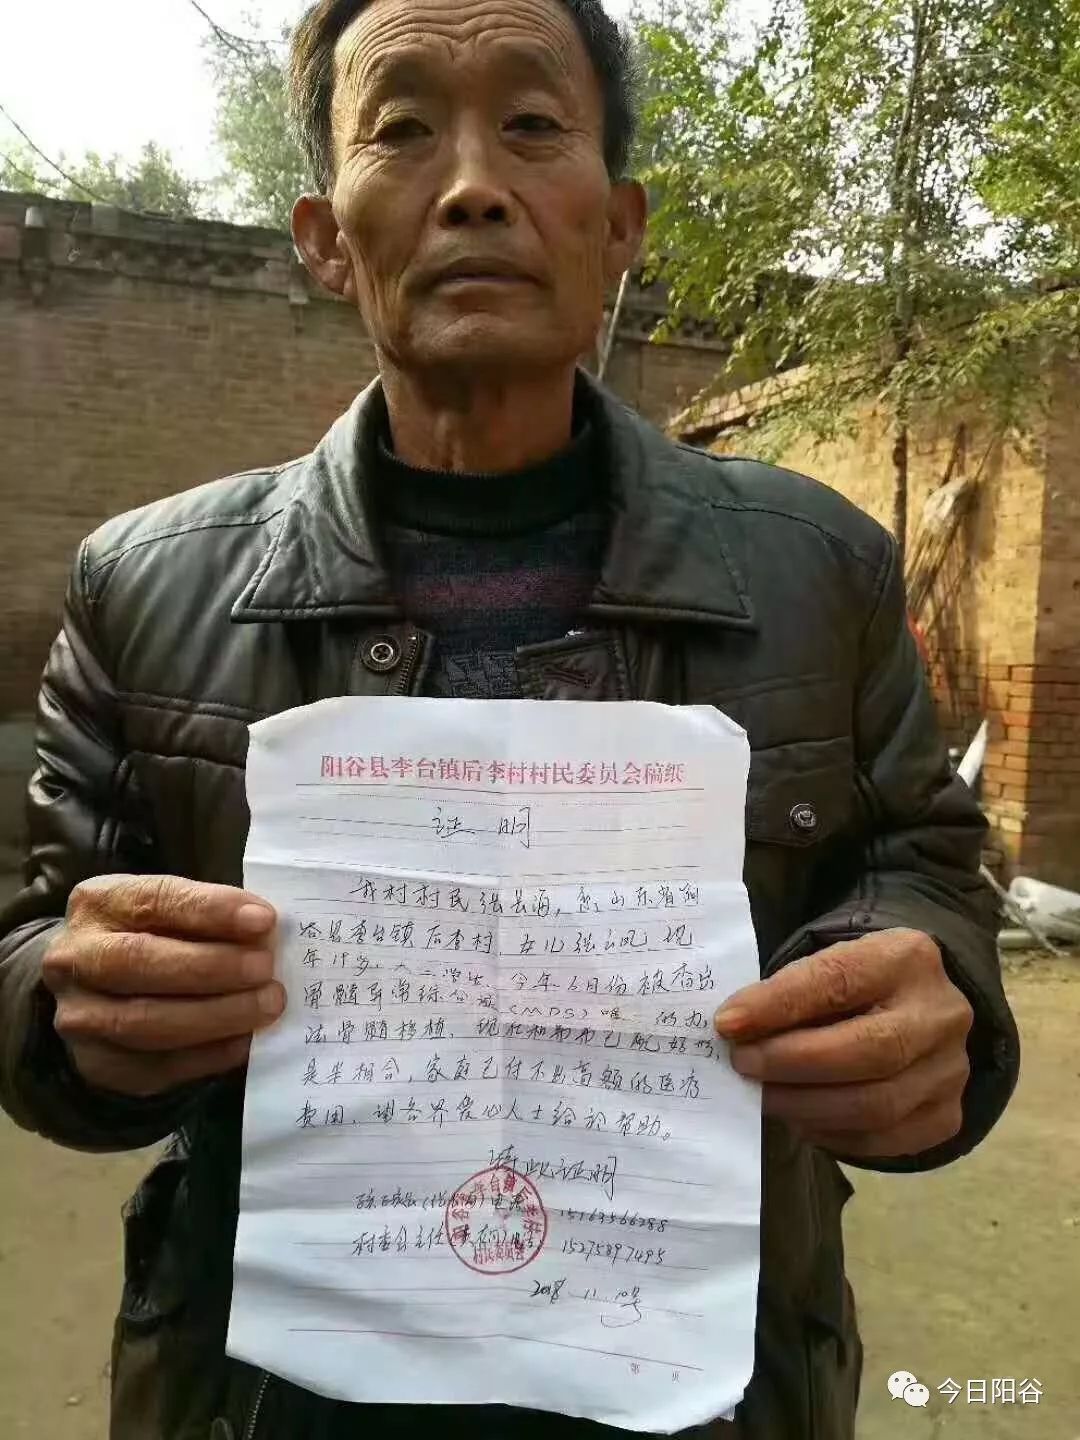 阳谷县李台镇后李村村民委员会稿纸
证明
我村村民张县海,系山东省阳
谷县李台镇后李村,女儿张云凤现
年19岁,大二学生、今年6月份被查出
骨髓异常综合证(MDS)唯一的办
法骨髓移植、现在和爸爸已配好型,
是半相合,家庭已付不出高额的医疗
费用,请各界爱心人士给于帮助。
特此证明
电话 15163566288
村委会主任 15275897495
2018.11.10号
村民委员会
第 页
今日阳谷